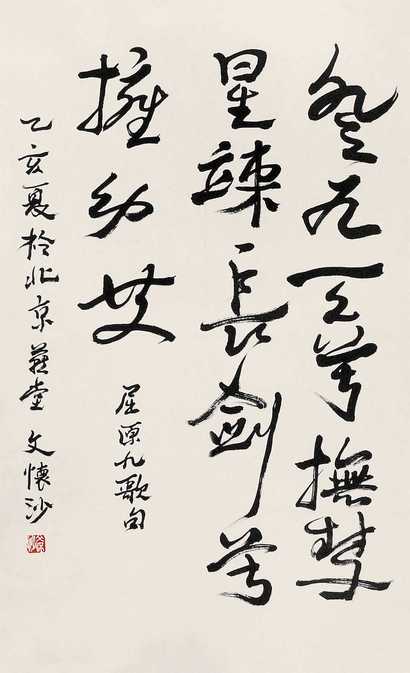 登九天兮撫彗
星竦長劍兮
擁幼艾
屈原九歌句
乙亥夏於北京燕堂 文懷沙